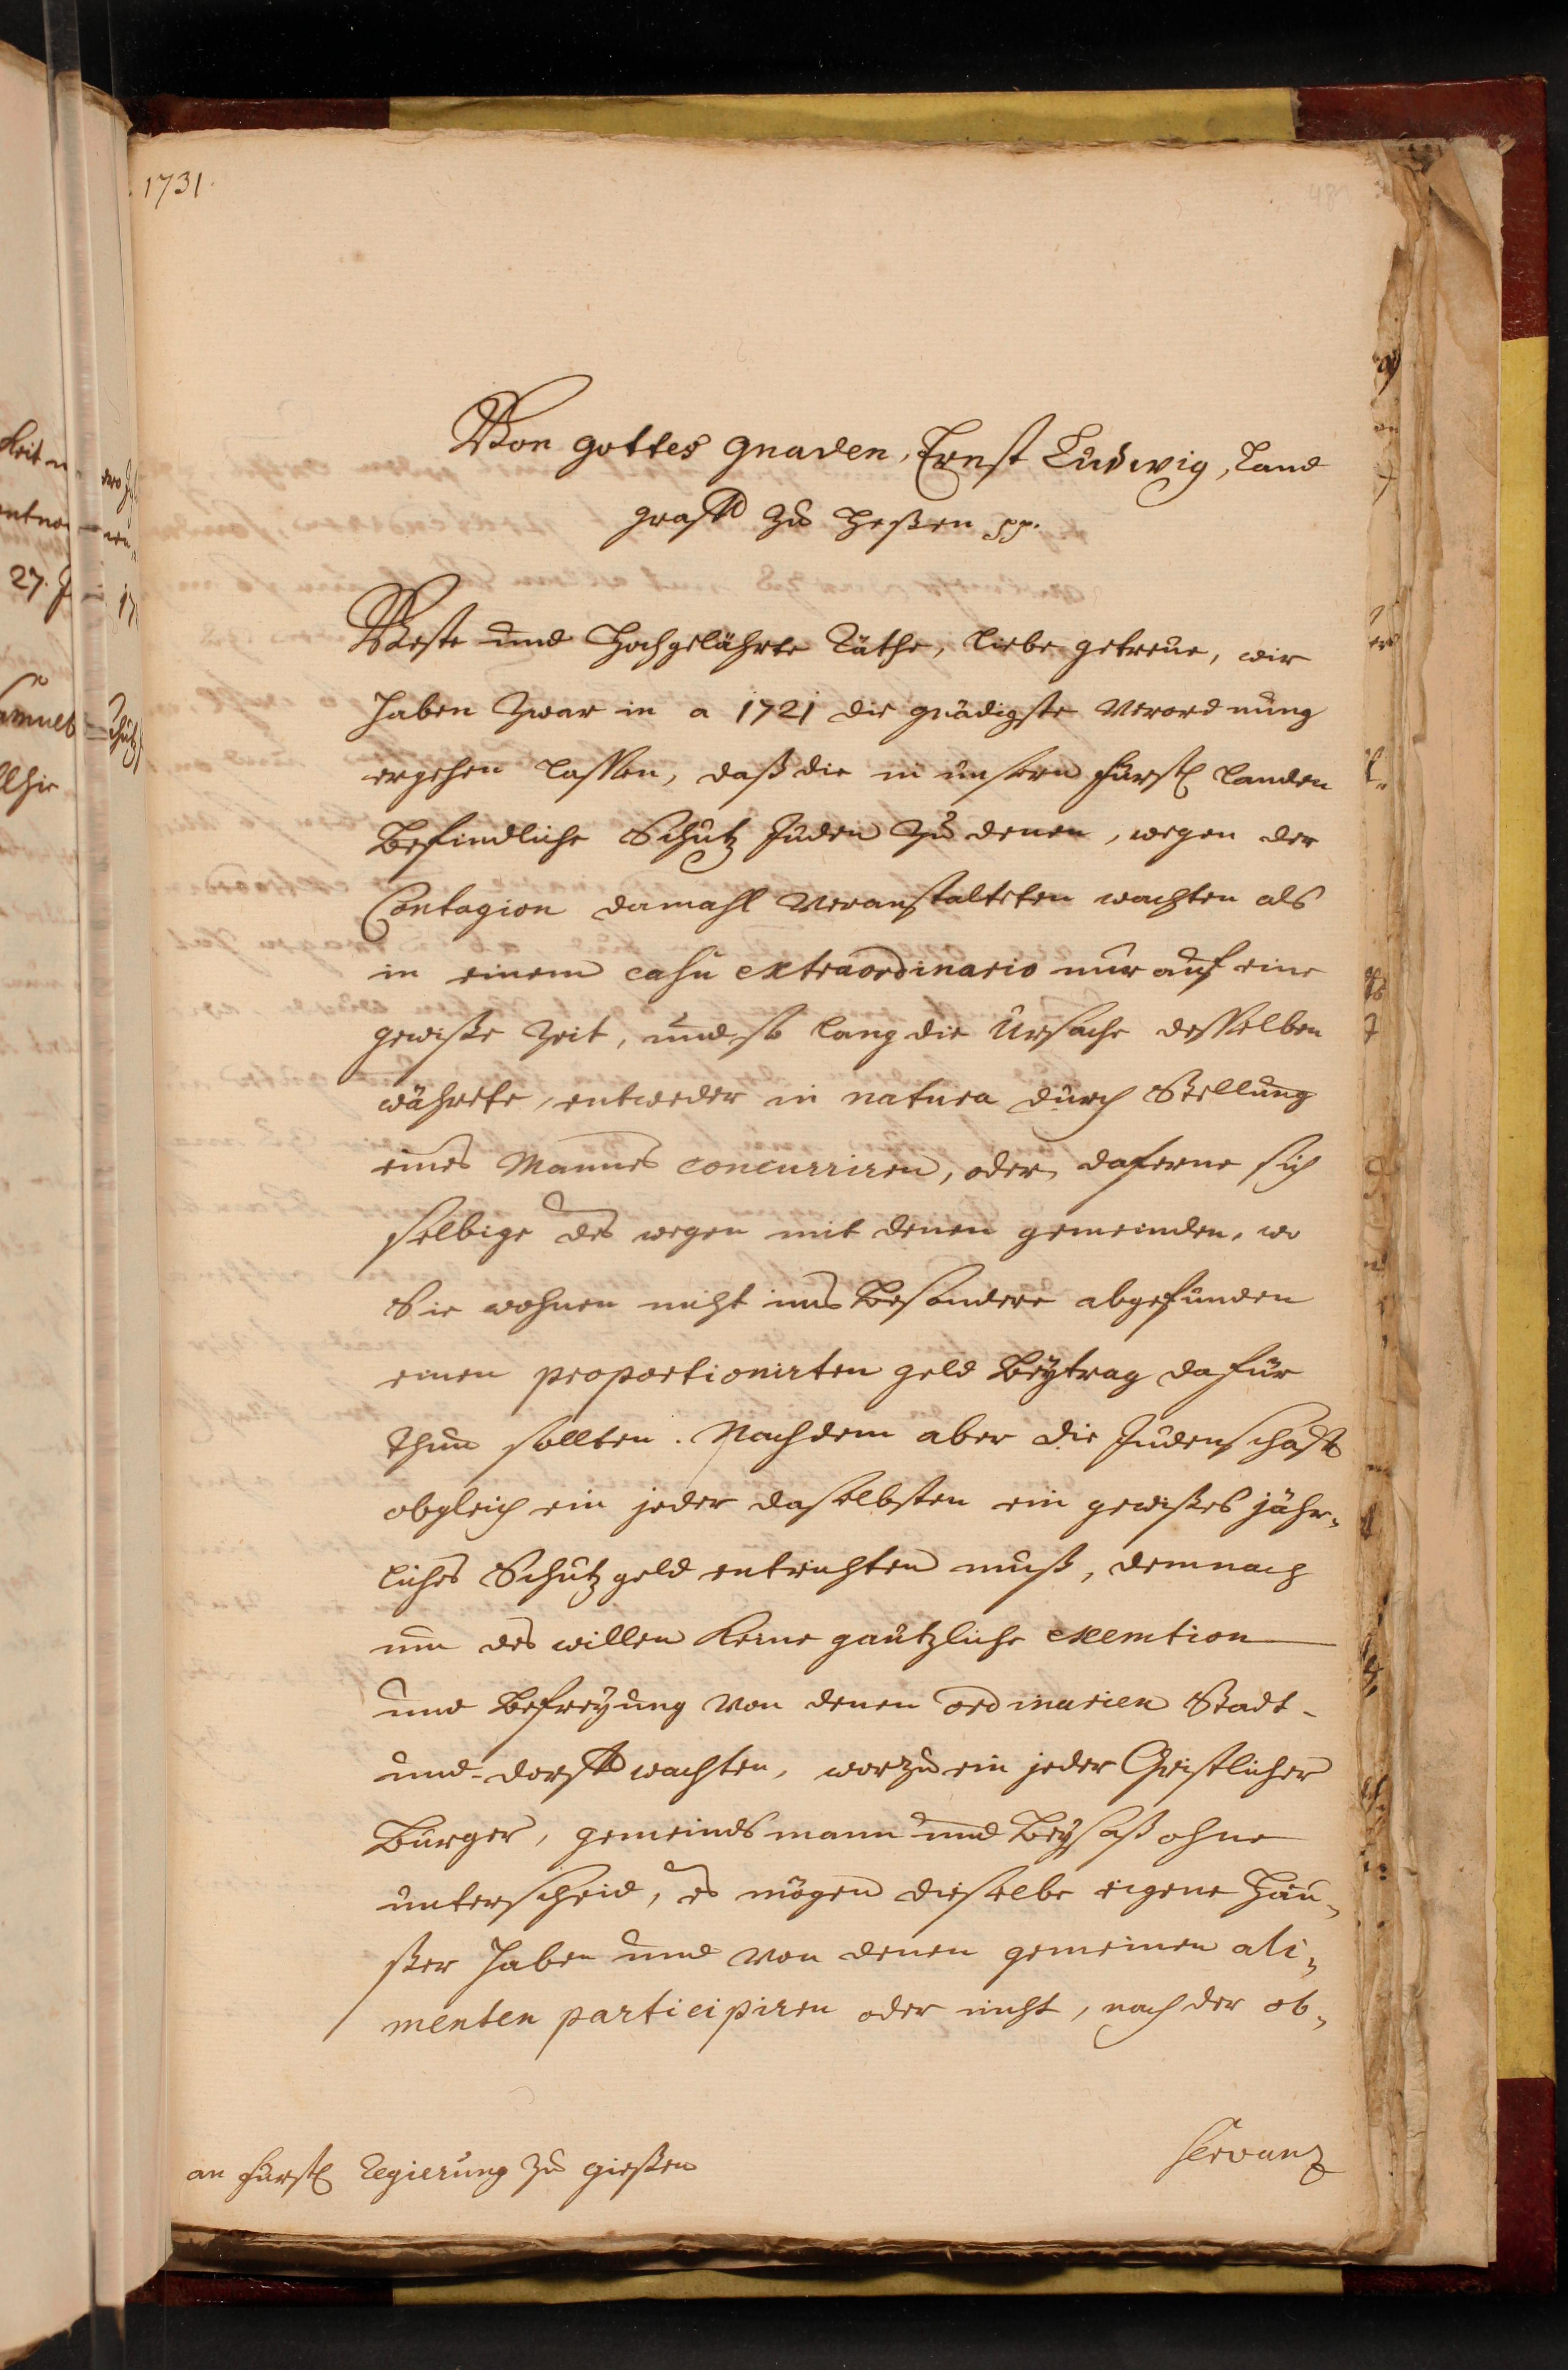 1731.
481
Von gottes gnaden, Ernst Ludwig, Land
grafft zu Heßen pp.
Veste und Hochgelährte Räthe, liebe getreue, wir
haben zwar in a 1721 die gnädigste Verordnung
ergehen lassen, daß die in unsern fürstl landen
Befindliche Schutz Juden zu denen, wegen der
Contagion damahl Veranstalteten wachten als
in einem casu extraordinario nur auf eine
gewiße Zeit, und so lang die Ursache desselben
währete, entweder in natura durch Stellung
eines Mannes concurriren, oder, daferne sich
selbige des wegen mit denen gemeinden, wo
Sie wohnen nicht ins Besondere abgefunden
einen proportionirten geld Beytrag dafür
thun sollten. Nachdem aber die Judenschafft
obgleich ein jeder daselbsten ein gewißes jähr,,
liches Schutz geld entrichten muß, demnach
um des willen keine gäntzliche exemtion
und Befreyung von denen ordinarien Stadt-
und dorfft wachten, worzu ein jeder Christlicher
Bürger, gemeindsmann und Beysaß ohne
unterscheid, es mögen dieselbe eigene Häu,,
ßer haben und von denen gemeinen ali,,
menten participiren oder nicht, nach der ob,,
servanz
an fürstl Regierung zu gießen